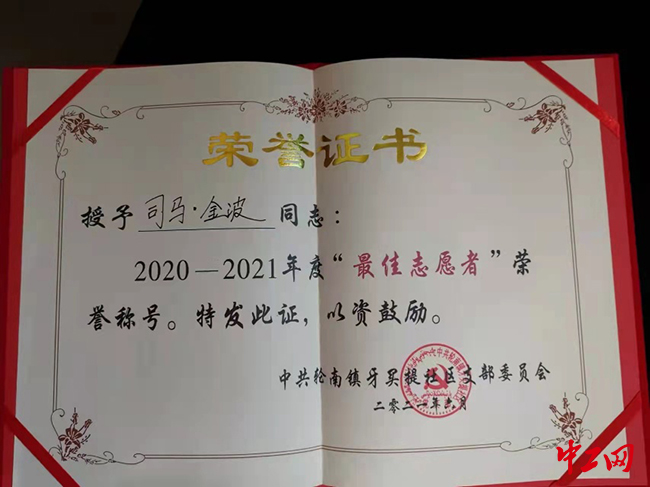 荣誉证书
授予 司马·金波 同志：
2020—2021年度“最佳志愿者”荣
誉称号。特发此证，以资鼓励。
中共轮南镇牙买提社区支部委员会
二〇二一年六月
中工网